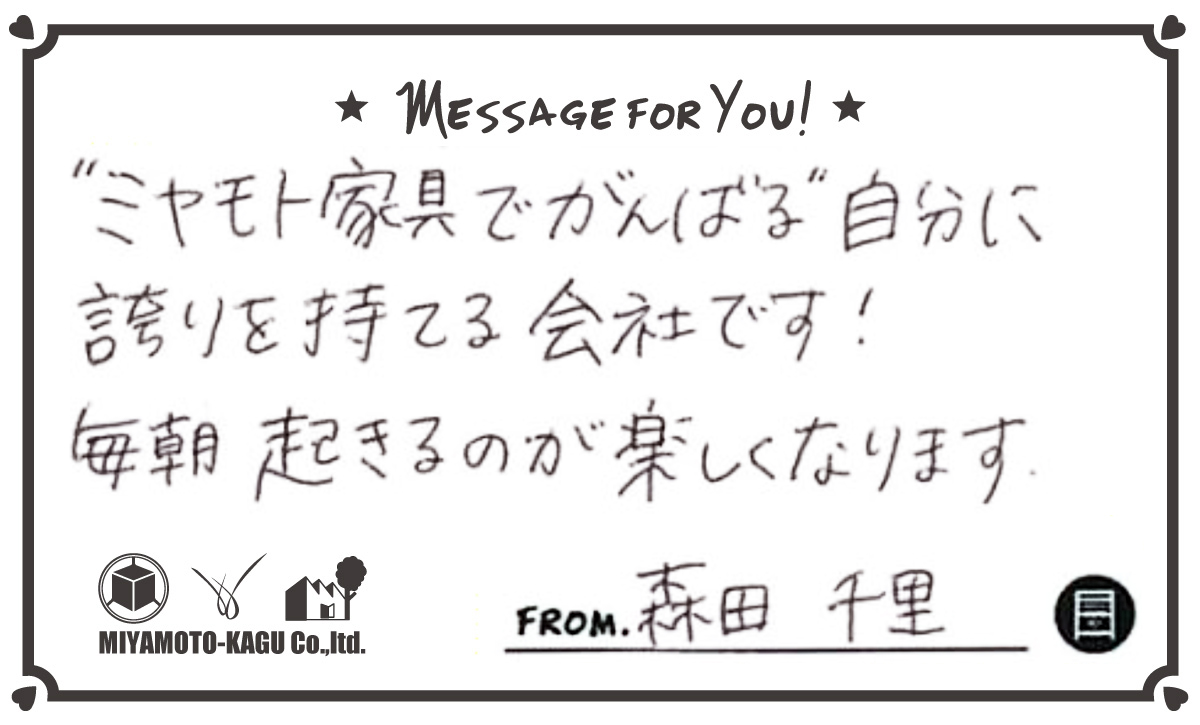 ★ MESSAGE FOR YOU! ★
"ミヤモト家具でがんばる"自分に
誇りを持てる会社です!
毎朝 起きるのが楽しくなります.
MIYAMOTO-KAGU Co.,ltd.
FROM. 森田 千里